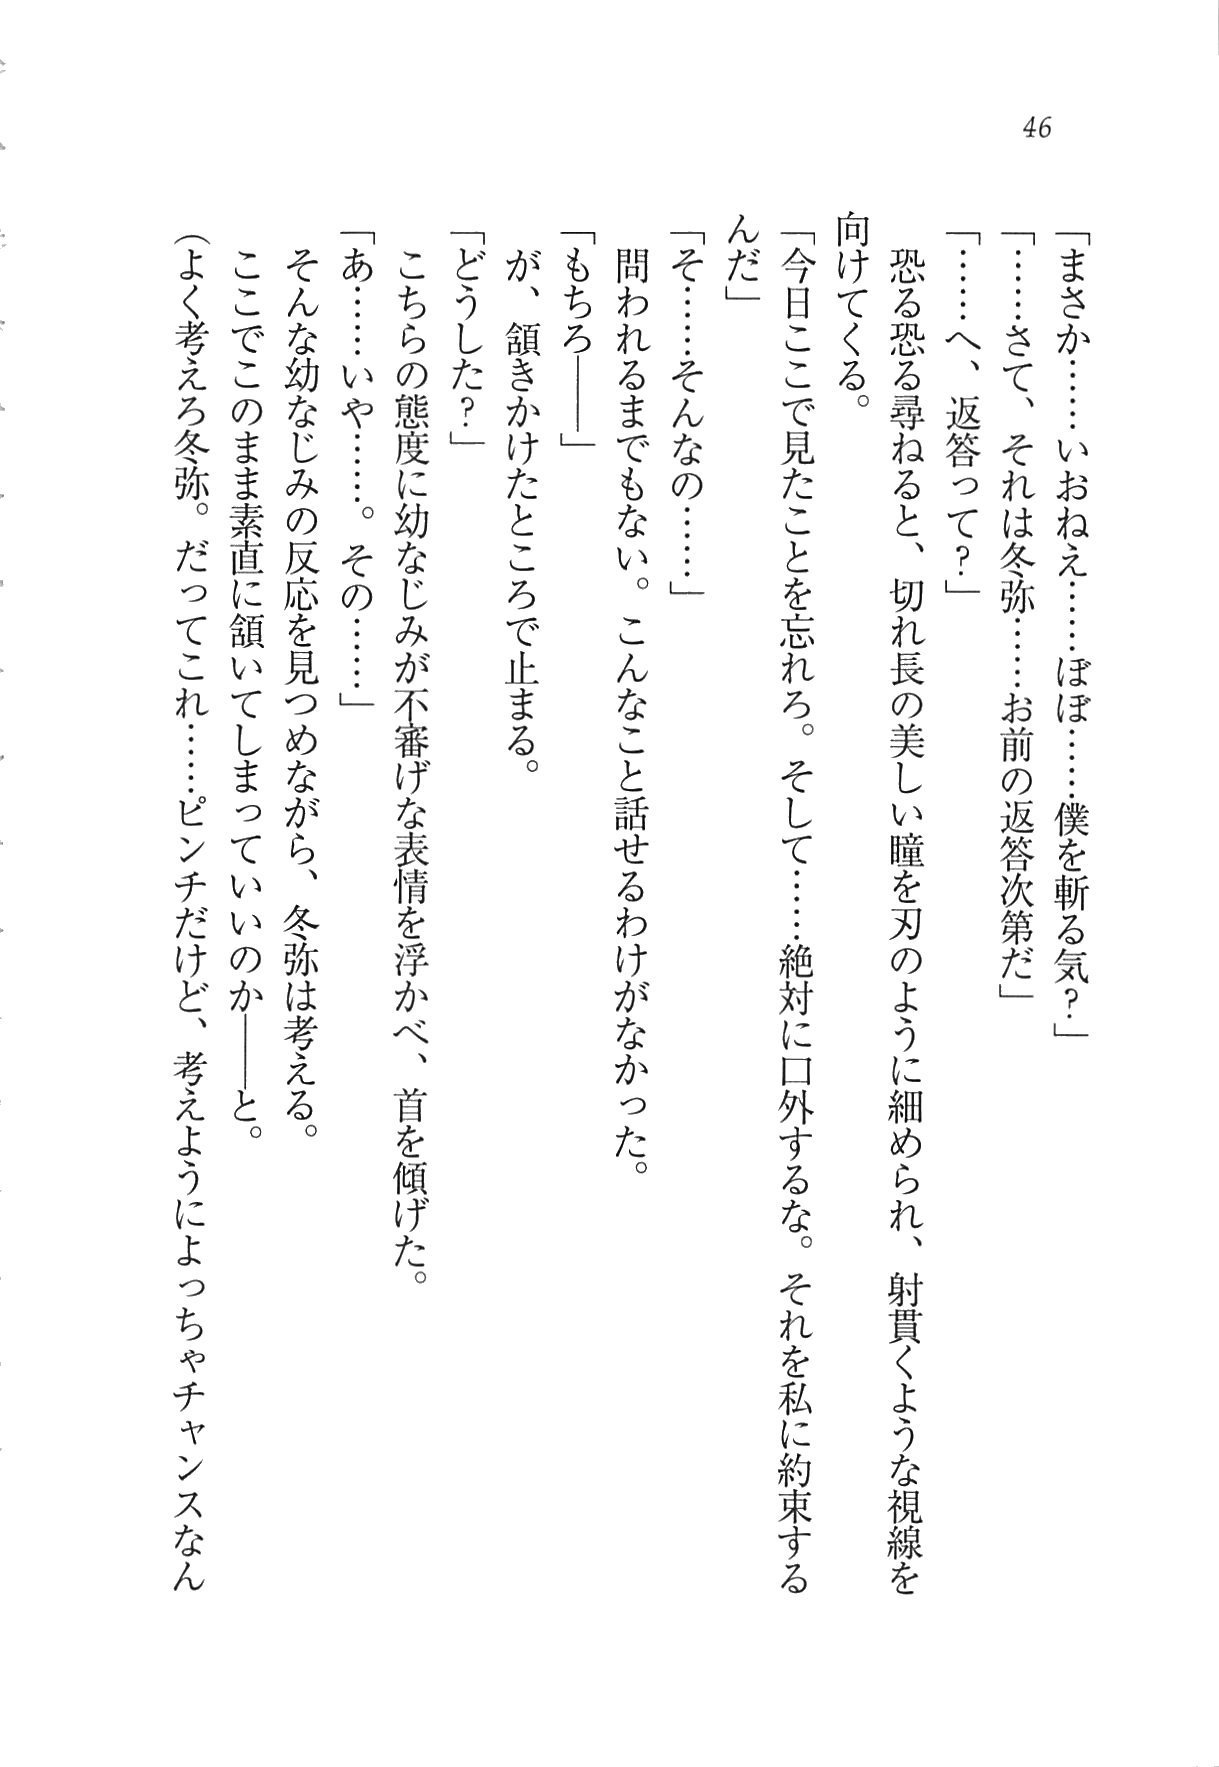 46
「まさか……いおねえ……ぼぼ……僕を斬る気？」
「……さて、それは冬弥……お前の返答次第だ」
「……へ、返答って？」
　恐る恐る尋ねると、切れ長の美しい瞳を刃のように細められ、射貫くような視線を
向けてくる。
「今日ここで見たことを忘れろ。そして……絶対に口外するな。それを私に約束する
んだ」
「そ……そんなの……」
　問われるまでもない。こんなこと話せるわけがなかった。
「もちろ――」
　が、頷きかけたところで止まる。
「どうした？」
　こちらの態度に幼なじみが不審げな表情を浮かべ、首を傾げた。
「あ……いや……。その……」
　そんな幼なじみの反応を見つめながら、冬弥は考える。
　ここでこのまま素直に頷いてしまっていいのか――と。
（よく考えろ冬弥。だってこれ……ピンチだけど、考えようによっちゃチャンスなん